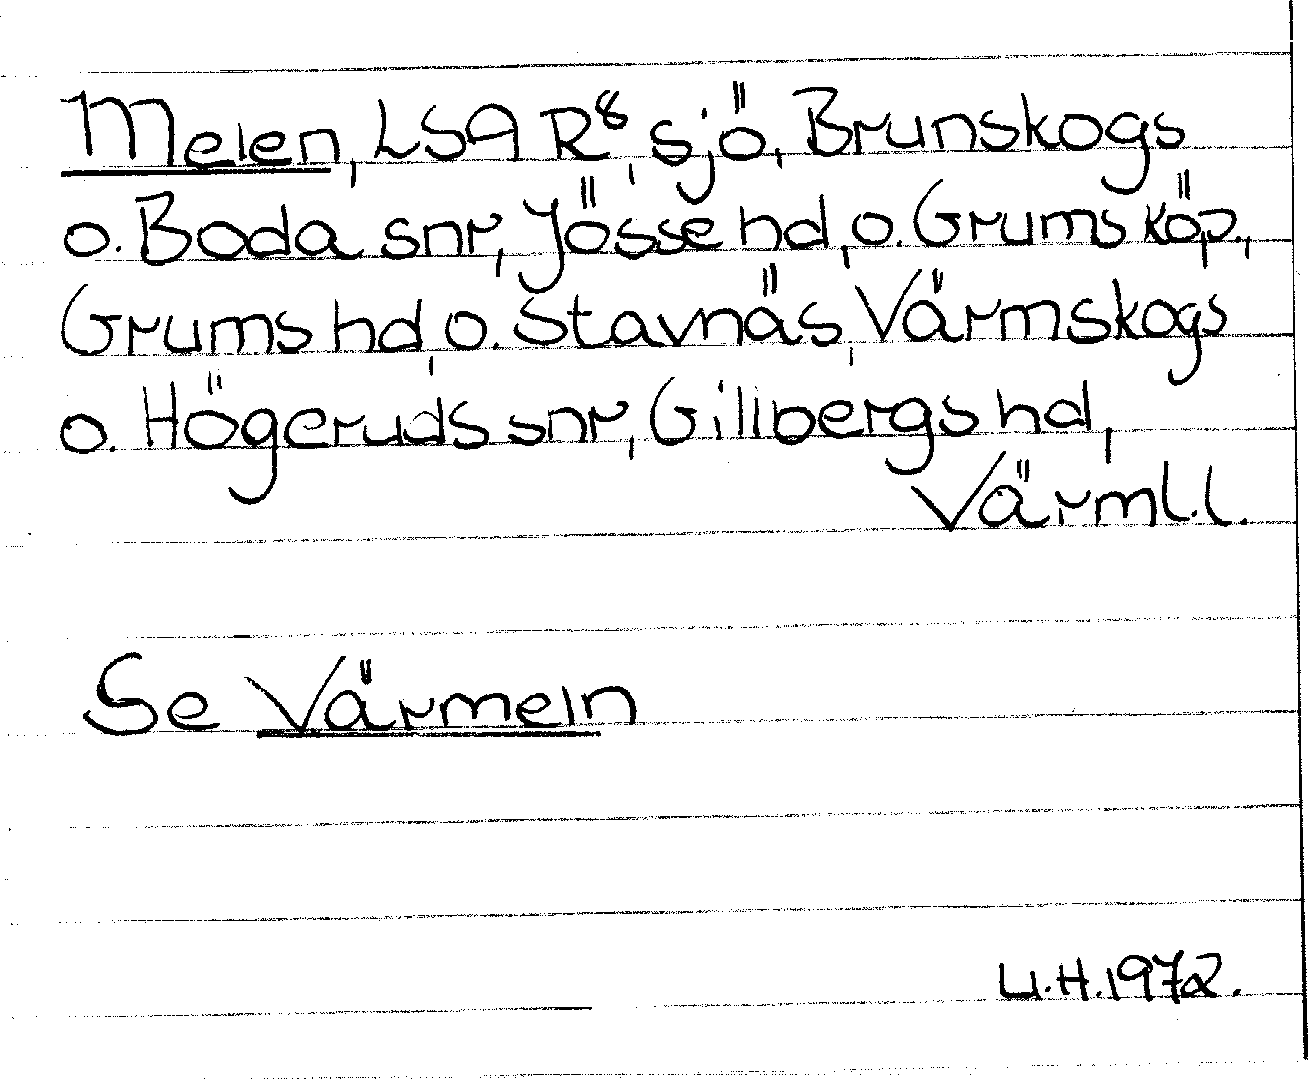 Melen, LSA R⁸, sjö, Brunskogs
o. Boda snr, Jösse hd, o. Grums köp.,
Grums hd, o. Stavnäs, Värmskogs
o. Högeruds snr, Gillbergs hd,
Värml.l.
Se Värmeln
U.H.1972.